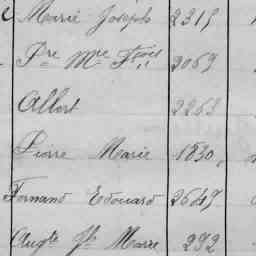 Marie Joseph 2315
Pre Mie Fçois 2069
Albert 2263
Pierre Marie 1830
Fernand Edouard 2645
Augte Jh Marie 292